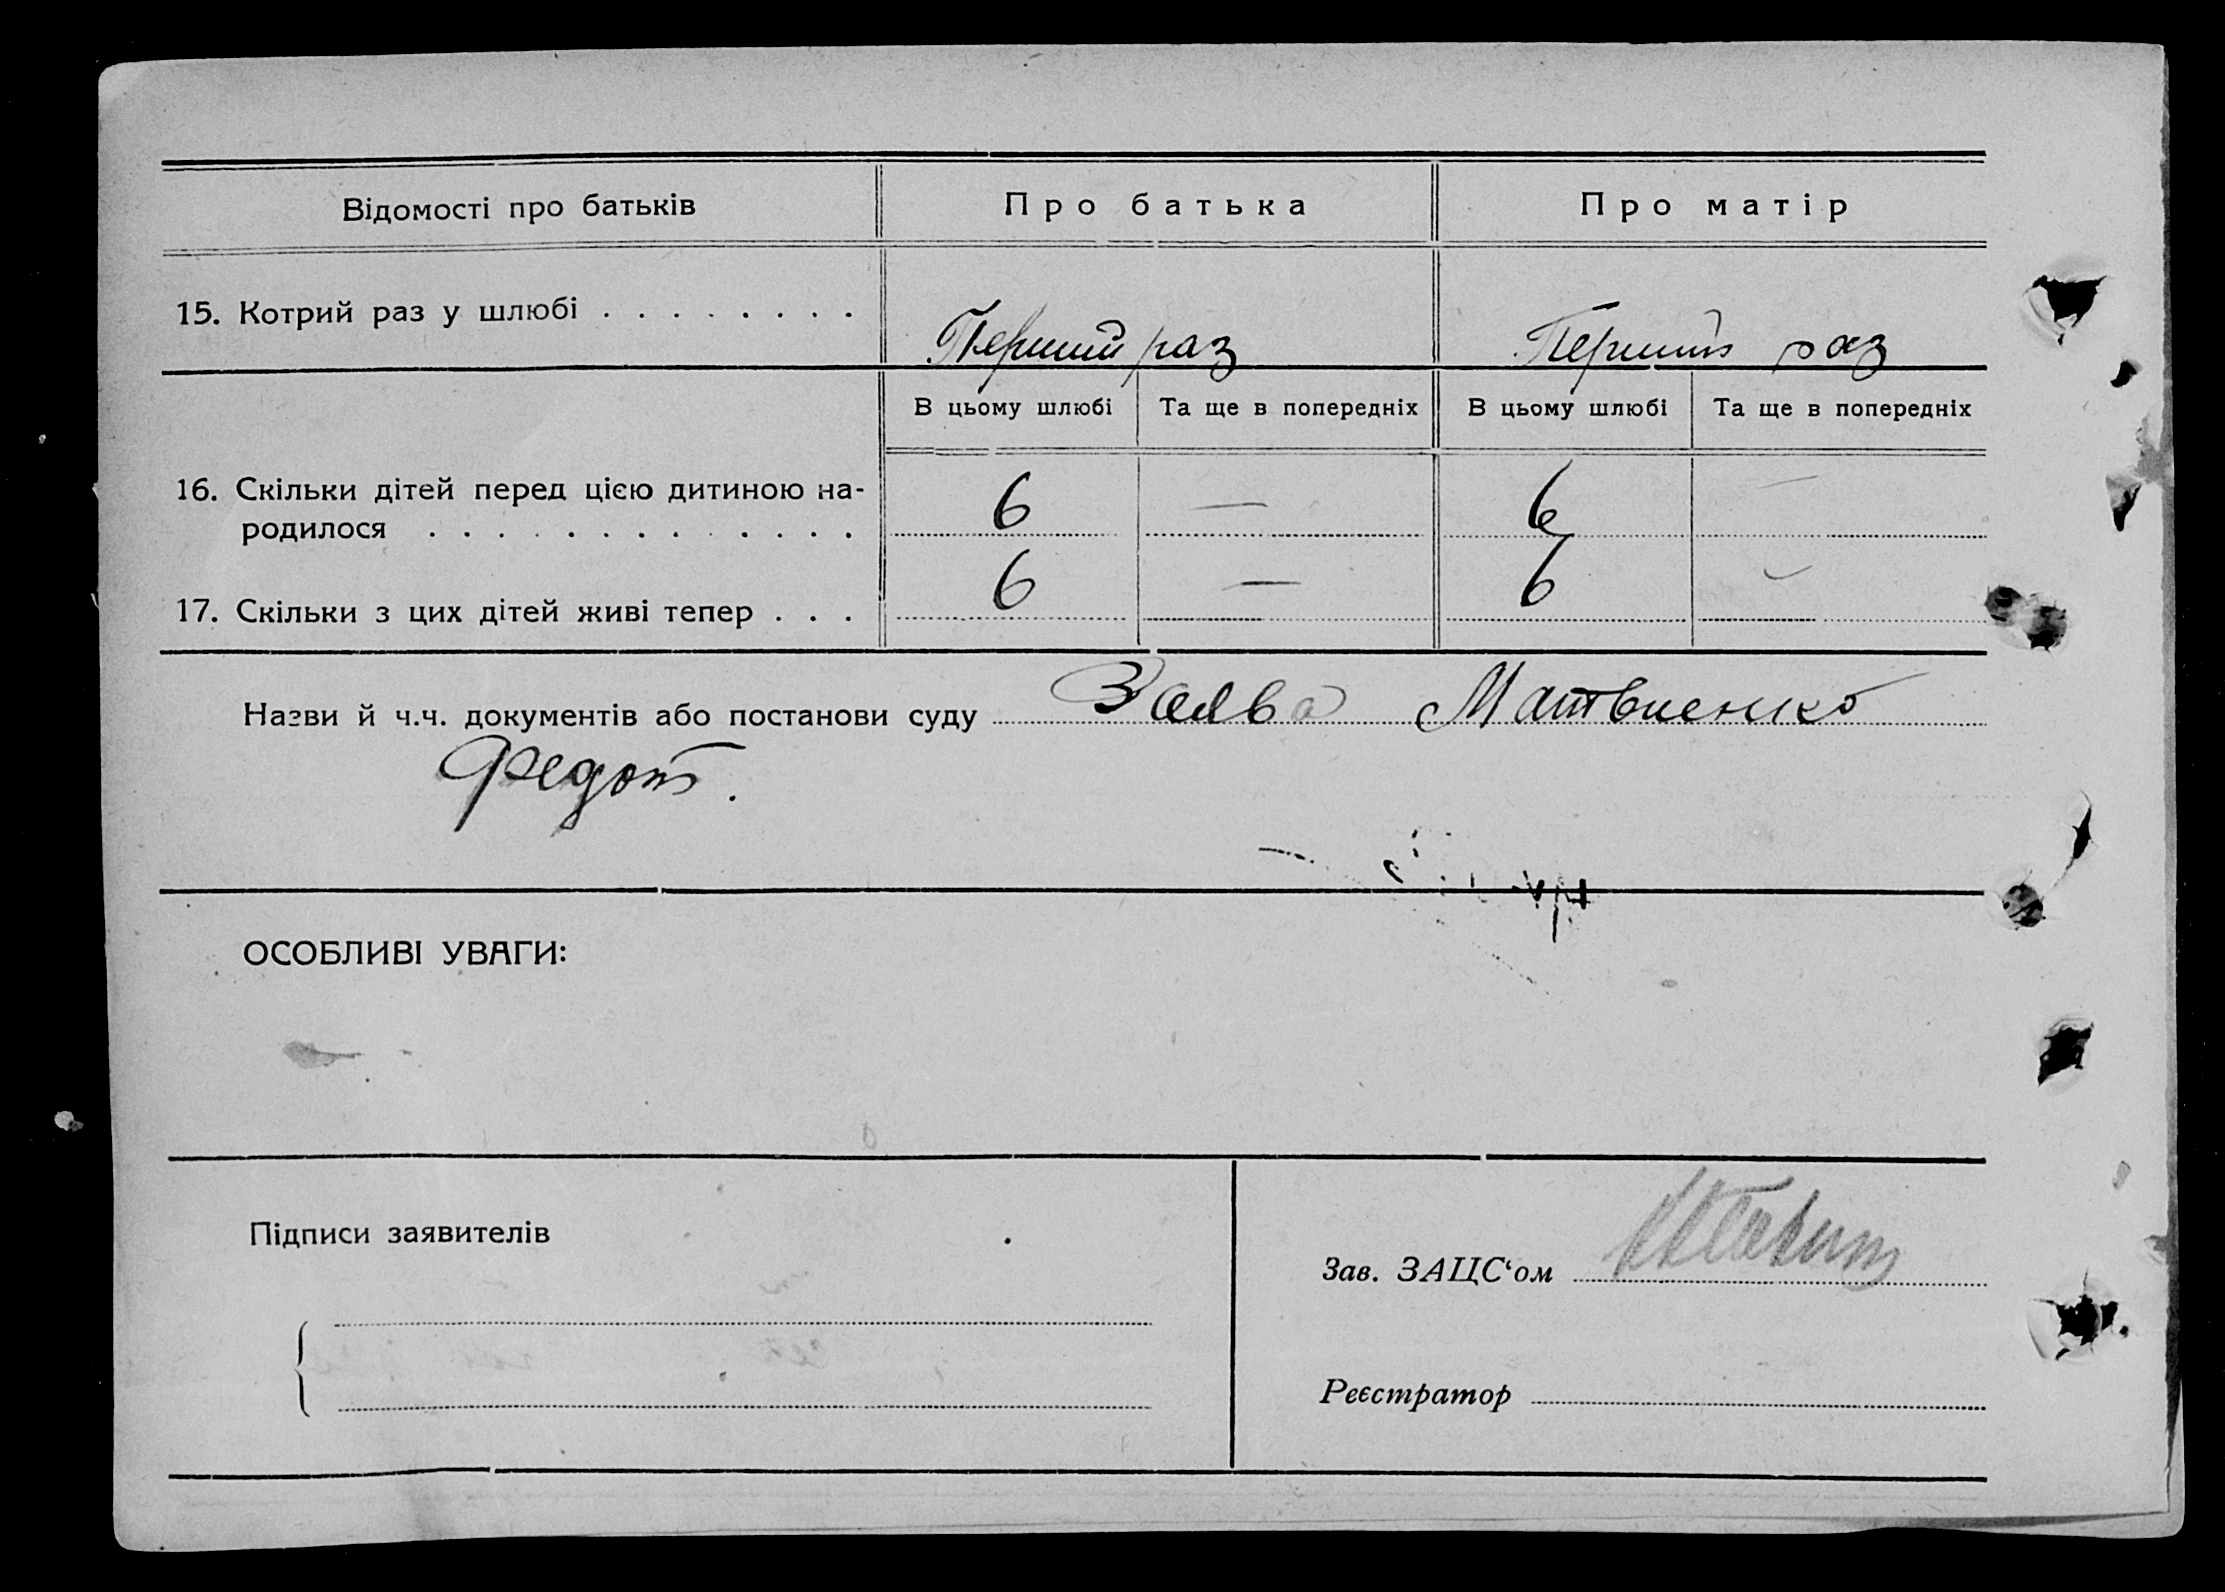 Відомості про батьків Про батька Про матір
15. Котрий раз у шлюбі . . . . . . . . Перший раз Перший раз
В цьому шлюбі Та ще в попередніх В цьому шлюбі Та ще в попередніх
16. Скільки дітей перед цією дитиною на-
родилося . . . . . . . . . . . . . 6 — 6 —
17. Скільки з цих дітей живі тепер . . . 6 — 6 —
Назви й ч.ч. документів або постанови суду Заява Матвиенко
Федот.
ОСОБЛИВІ УВАГИ:
Підписи заявителів
Зав. ЗАЦС‘ом
Реєстратор